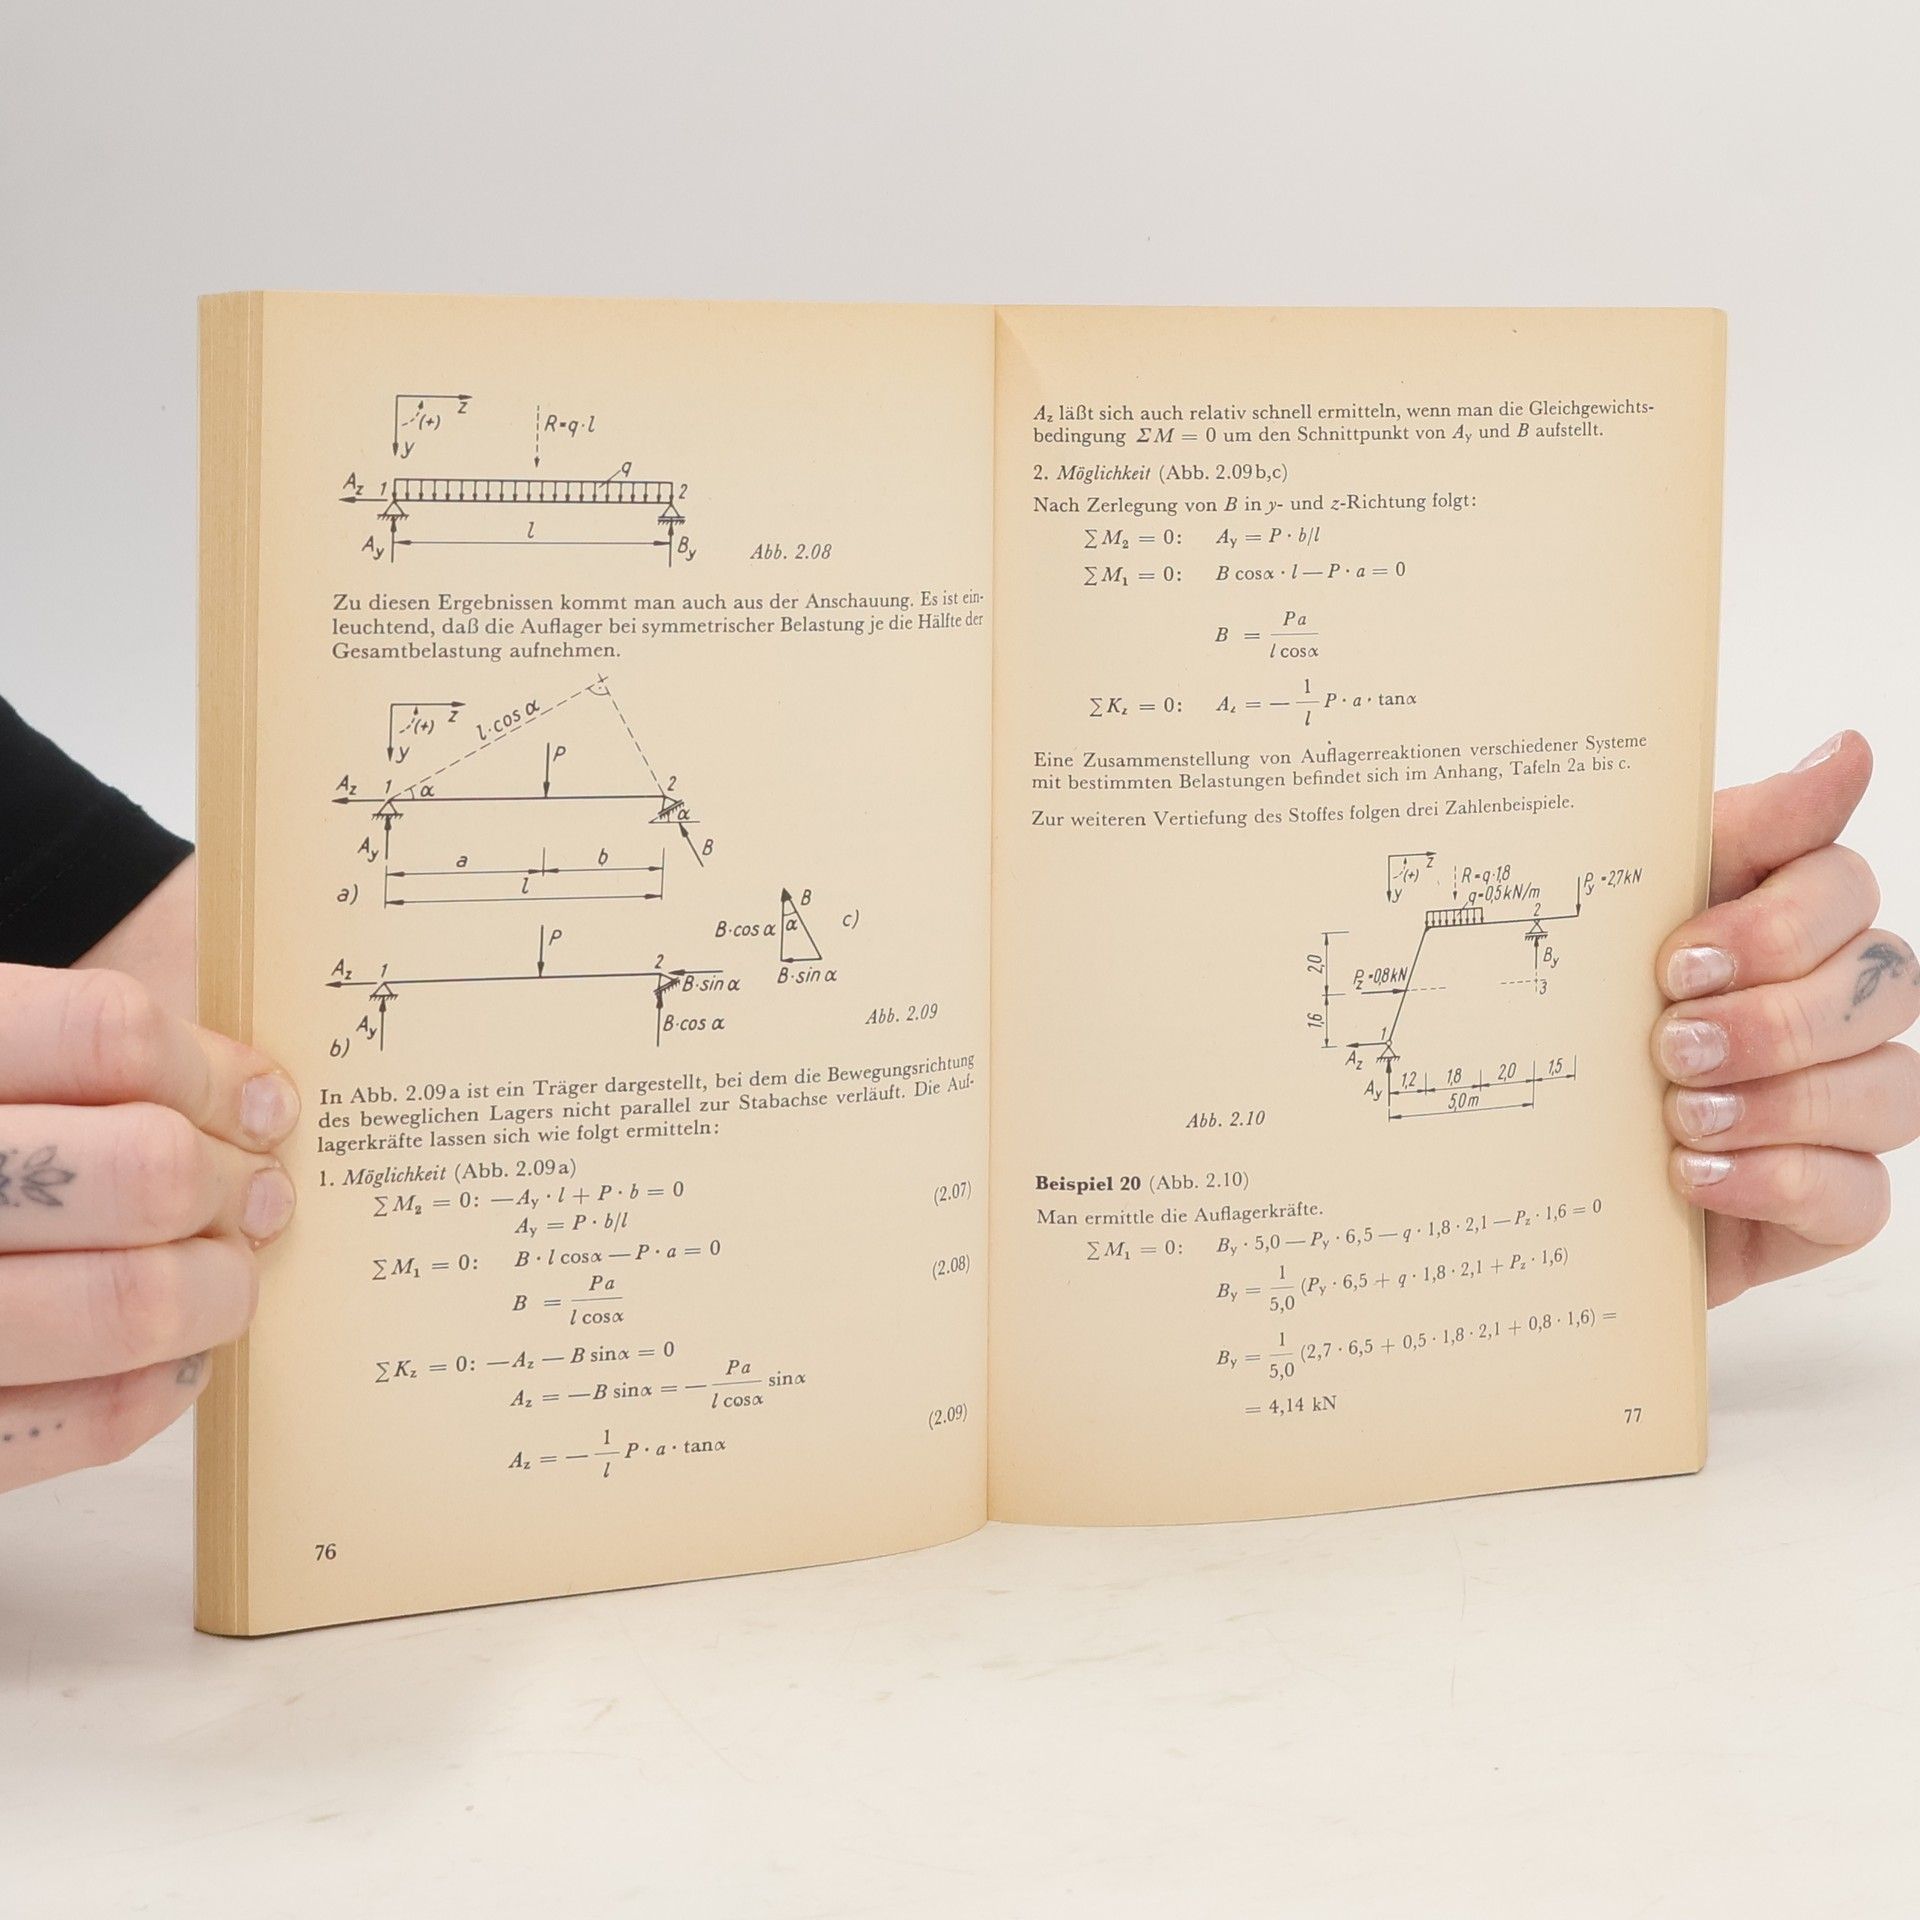 z
(+)
y
R=q·l
q
A_z 1 2
l
A_y B_y Abb. 2.08
Zu diesen Ergebnissen kommt man auch aus der Anschauung. Es ist ein-
leuchtend, daß die Auflager bei symmetrischer Belastung je die Hälfte der
Gesamtbelastung aufnehmen.
z
(+)
y
l·cos α
P
A_z 1 α 2
α
A_y B
a b
l
a)
B
B·cos α α c)
B·sin α
P
A_z 1 2
B·sin α
A_y B·cos α
b)
Abb. 2.09
In Abb. 2.09a ist ein Träger dargestellt, bei dem die Bewegungsrichtung
des beweglichen Lagers nicht parallel zur Stabachse verläuft. Die Auf-
lagerkräfte lassen sich wie folgt ermitteln:
1. Möglichkeit (Abb. 2.09a)
∑M₂ = 0: —A_y · l + P · b = 0 (2.07)
A_y = P · b/l
∑M₁ = 0: B · l cosα — P · a = 0 (2.08)
B = Pa / l cosα
∑K_z = 0: —A_z — B sinα = 0
A_z = —B sinα = — Pa / l cosα sinα
(2.09)
A_z = — 1/l P · a · tanα
76
A_z läßt sich auch relativ schnell ermitteln, wenn man die Gleichgewichts-
bedingung ΣM = 0 um den Schnittpunkt von A_y und B aufstellt.
2. Möglichkeit (Abb. 2.09b,c)
Nach Zerlegung von B in y- und z-Richtung folgt:
∑M₂ = 0: A_y = P · b/l
∑M₁ = 0: B cosα · l — P · a = 0
B = Pa / l cosα
∑K_z = 0: A_z = — 1/l P · a · tanα
Eine Zusammenstellung von Auflagerreaktionen verschiedener Systeme
mit bestimmten Belastungen befindet sich im Anhang, Tafeln 2a bis c.
Zur weiteren Vertiefung des Stoffes folgen drei Zahlenbeispiele.
z
(+)
y
R=q·1,8
q=0,5kN/m
P_y=2,7kN
2
2,0
B_y
P_z=0,8kN
3
1,6
1
A_z
A_y 1,2 1,8 2,0 1,5
5,0m
Abb. 2.10
Beispiel 20 (Abb. 2.10)
Man ermittle die Auflagerkräfte.
∑M₁ = 0: B_y · 5,0 — P_y · 6,5 — q · 1,8 · 2,1 — P_z · 1,6 = 0
B_y = 1/5,0 (P_y · 6,5 + q · 1,8 · 2,1 + P_z · 1,6)
B_y = 1/5,0 (2,7 · 6,5 + 0,5 · 1,8 · 2,1 + 0,8 · 1,6) =
= 4,14 kN
77